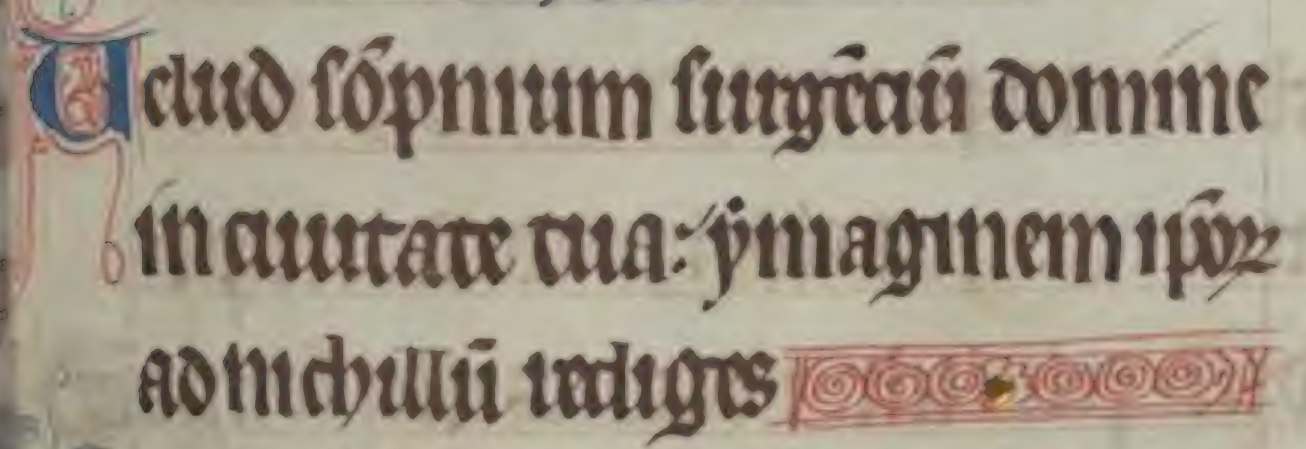 Uelud ſōpnium ſurgētiū domine
in ciuitate tua: ẏmaginem ip̄oꝝ
ad nichillū rediges